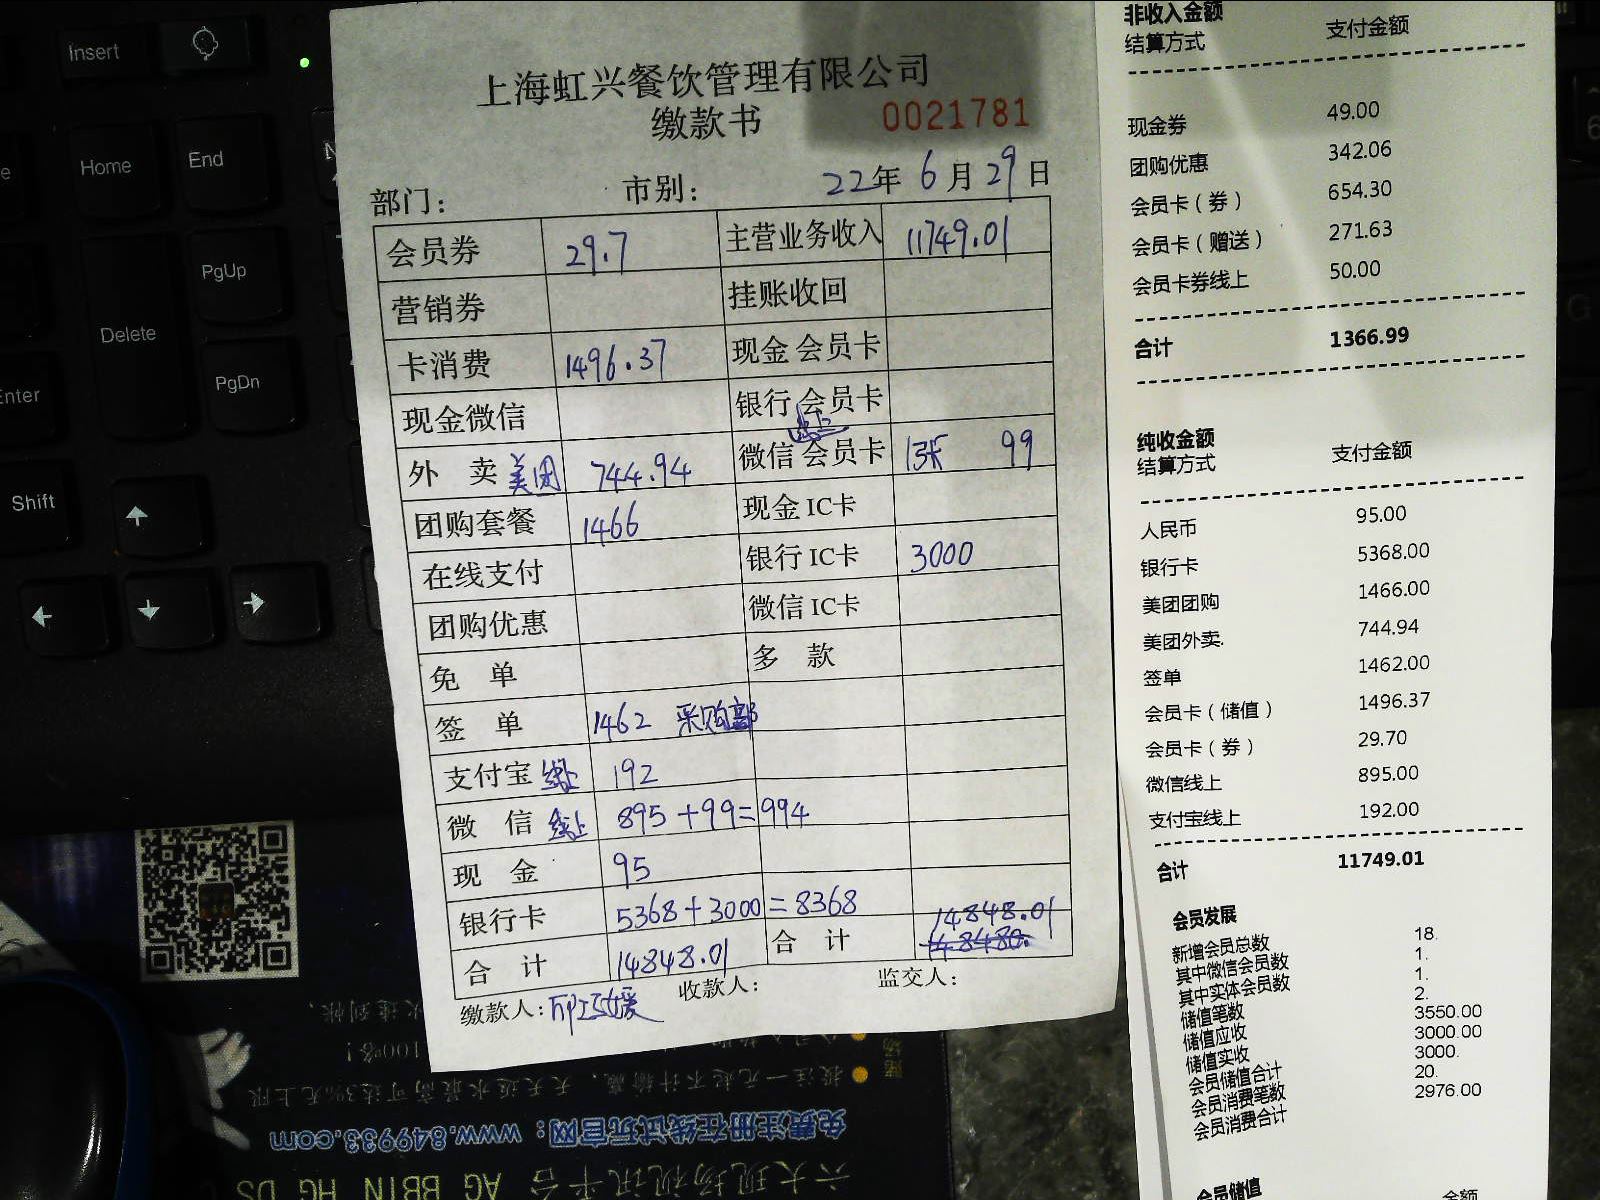 Insert
Home
End
PgUp
Delete
PgDn
Enter
Shift
上海虹兴餐饮管理有限公司
缴款书
0021781
部门： 市别： 22年 6月 29日
会员券 29.7 主营业务收入 11749.01
营销券 挂账收回
卡消费 1496.37 现金会员卡
现金微信 银行会员卡
外 卖 美团 744.94 微信 线上 会员卡 1张 99
团购套餐 1466 现金IC卡
在线支付 银行IC卡 3000
团购优惠 微信IC卡
免 单 多 款
签 单 1462 采购部
支付宝 线上 192
微 信 线上 895+99=994
现 金 95
银行卡 5368+3000=8368
合 计 14848.01 合 计 14848.01
缴款人： 收款人： 监交人：
非收入金额
结算方式 支付金额
现金券 49.00
团购优惠 342.06
会员卡（券） 654.30
会员卡（赠送） 271.63
会员卡券线上 50.00
合计 1366.99
纯收金额
结算方式 支付金额
人民币 95.00
银行卡 5368.00
美团团购 1466.00
美团外卖. 744.94
签单 1462.00
会员卡（储值） 1496.37
会员卡（券） 29.70
微信线上 895.00
支付宝线上 192.00
合计 11749.01
会员发展
新增会员总数 18.
其中微信会员数 1.
其中实体会员数 1.
储值笔数 2.
储值应收 3550.00
储值实收 3000.00
会员储值合计 3000.
会员消费笔数 20.
会员消费合计 2976.00
会员储值 金额
100%!
投注一元起不计输赢，天天返水最高可达3%无上限
免费注册在线试玩官网：www.849933.com
六大现场视讯平台 AG BBIN HG DS